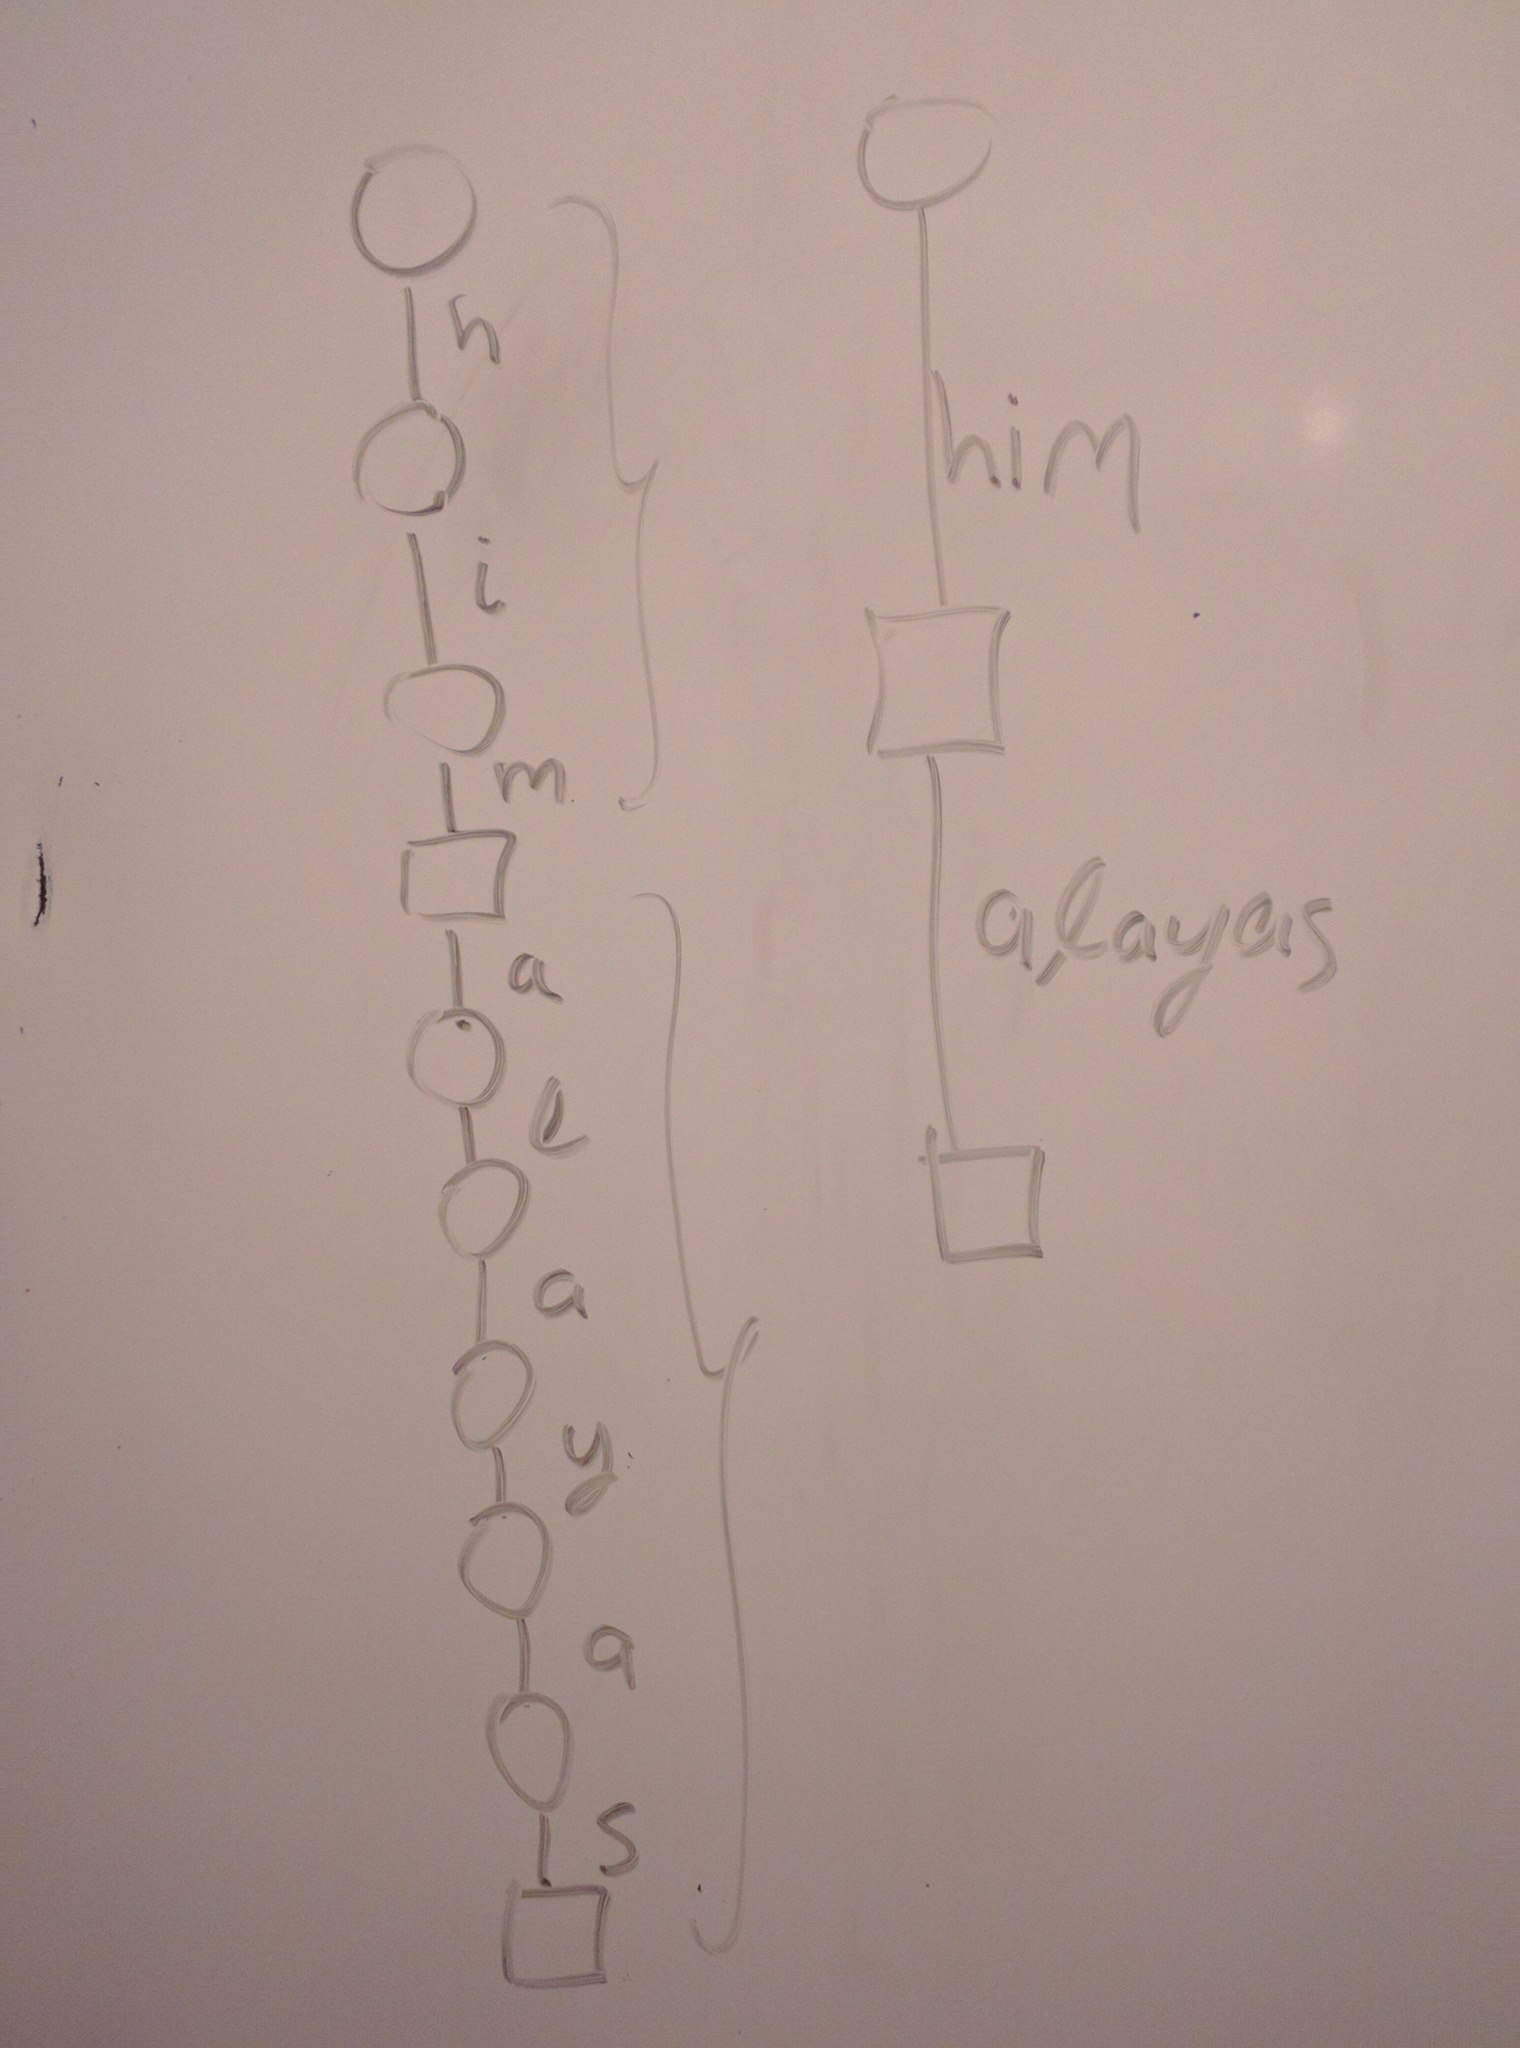 h
i
m
a
l
a
y
a
s
him
alayas